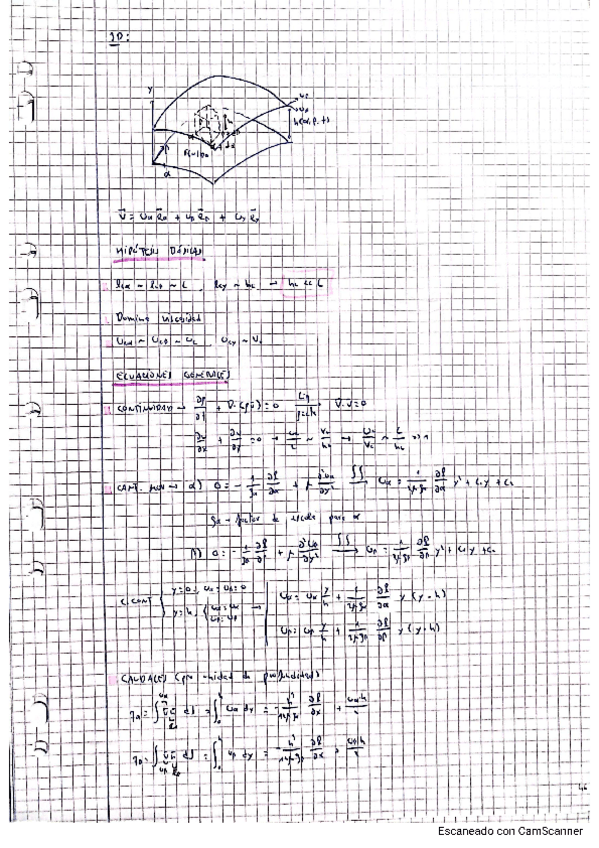 3D:
y
h(α,β,t)
Fluido
α
v⃗ = u_α e⃗_α + u_β e⃗_β + u_y e⃗_y
HIPÓTESIS BÁSICAS
l_cα ~ l_cβ ~ L , l_cy ~ h_c → h_c << L
Domina viscosidad
u_cα ~ u_cβ ~ u_c , u_cy ~ V_c
ECUACIONES GENERALES
CONTINUIDAD → ∂ρ/∂t + ∇·(ρv) = 0 Liq ρ=cte ∇·v = 0
∂u/∂x + ∂v/∂y = 0 → u_c/L ~ V_c/h_c → u_c/V_c ~ L/h_c >> 1
CANT. MOV → α) 0 = - 1/g_α ∂P/∂α + μ ∂²u_α/∂y² ∫∫ → u_α = 1/2μg_α ∂P/∂α y² + c₁y + c₂
g_α → factor de escala para α
β) 0 = - 1/g_β ∂P/∂β + μ ∂²u_β/∂y² ∫∫ → u_β = 1/2μg_β ∂P/∂β y² + c₁y + c₂
C. CONT { y = 0 ; u_α = u_β = 0
y = h ; { u_α = u_α
u_β = u_β
u_α = u_α y/h + 1/2μg_α ∂P/∂α y (y-h)
u_β = u_β y/h + 1/2μg_β ∂P/∂β y (y-h)
CAUDALES (por unidad de profundidad)
q_α = ∫ v⃗ n⃗ ds = ∫₀ʰ u_α dy = - h³/12μg_α ∂P/∂α + u_α h/2
q_β = ∫ v⃗ n⃗ ds = ∫₀ʰ u_β dy = - h³/12μg_β ∂P/∂α + u_β h/2
46
Escaneado con CamScanner